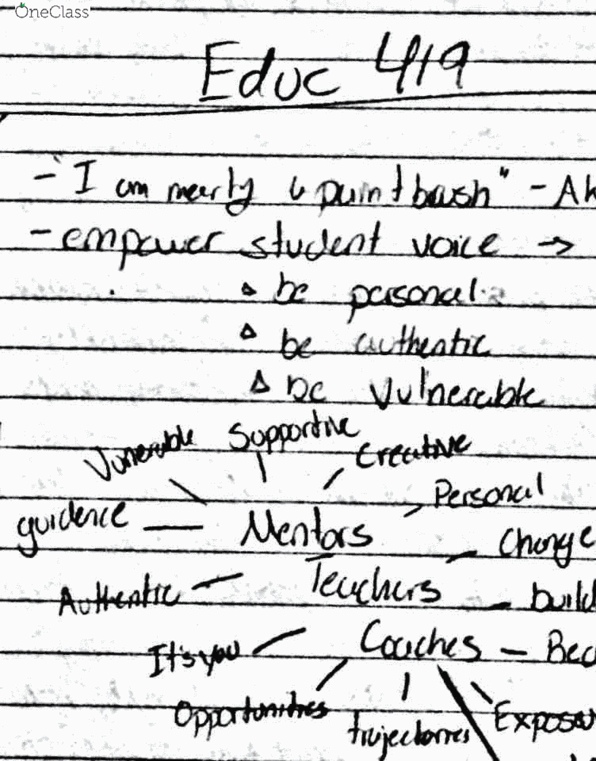 OneClass
Educ 419
- "I am mearly a paintbrush" - Ah
- empower student voice →
△ be personal.
△ be authentic
△ be vulnerable
Vunerable Supportive Creative
guidence Mentors Personal
Change
Authentic Teachers build
It's you Coaches - Bec
Opportunities trajectories Exposu